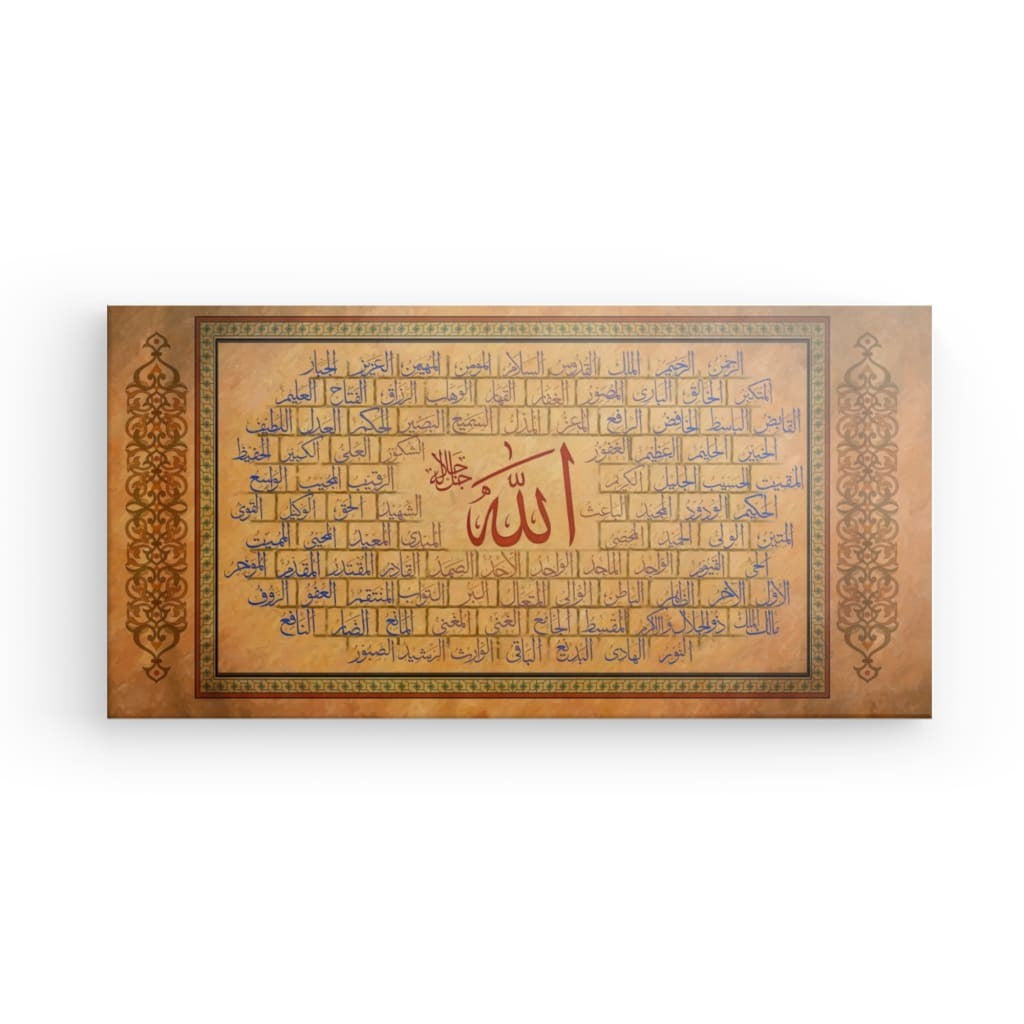 الرحمن الرحيم الملك القدوس السلام المؤمن المهيمن العزيز الجبار
المتكبر الخالق البارئ المصور الغفار القهار الوهاب الرزاق الفتاح العليم
القابض الباسط الخافض الرافع المعز المذل السميع البصير الحكم العدل اللطيف
الخبير الحليم العظيم الغفور الشكور العلي الكبير الحفيظ
المقيت الحسيب الجليل الكريم الرقيب المجيب الواسع
الله جل جلاله
الحكيم الودود المجيد الباعث الشهيد الحق الوكيل القوى
المتين الولى الحميد المحصى المبدئ المعيد المحيى المميت
الحى القيوم الواجد الماجد الواحد الأحد الصمد القادر المقتدر المقدم المؤخر
الأول الآخر الظاهر الباطن الوالى المتعال البر التواب المنتقم العفو الرؤف
مالك الملك ذو الجلال والإكرام المقسط الجامع الغنى المغنى المانع الضار النافع
النور الهادى البديع الباقى الوارث الرشيد الصبور